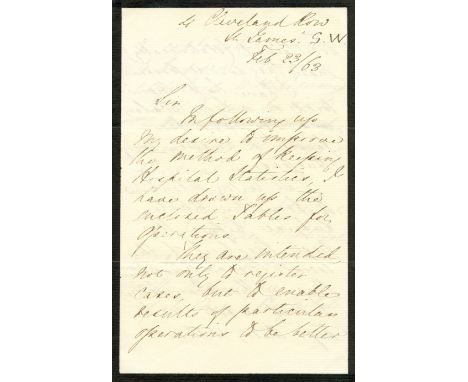 4 Cleveland Row
St. James' S.W
Feb 23/63
Sir
In following up
my desire to improve
the method of keeping
Hospital Statistics, I
have drawn up the
inclosed Tables for
operations
They are intended
not only to register
cases, but to enable
results of particular
operations to be better